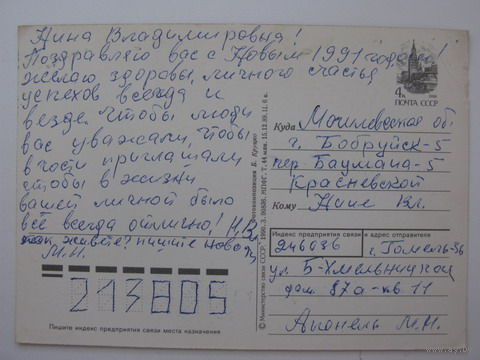 Нина Владимировня!
Поздравляю вас с Новым 1991 годом!
желаю здоровья, личного счастья
успехов всегда и
везде. Чтобы люди
вас уважали, чтобы
в гости приглашали
чтобы в жизни
вашей личной было
всё всегда отлично! Н.В.
как живёте? пишите
М.Н.
213805
Пишите индекс предприятия связи места назначения
© Министерство связи СССР, 1990.
15.12.89.
4к
ПОЧТА СССР
Куда Могилевская об
г. Бобруйск-5
пер. Баумана-5
Красневской
Кому Нине Вл.
Индекс предприятия связи и адрес отправителя
246036 г. Гомель-36
ул. Б-Хмельницкого
дом. 87а-кв 11
М.Н.